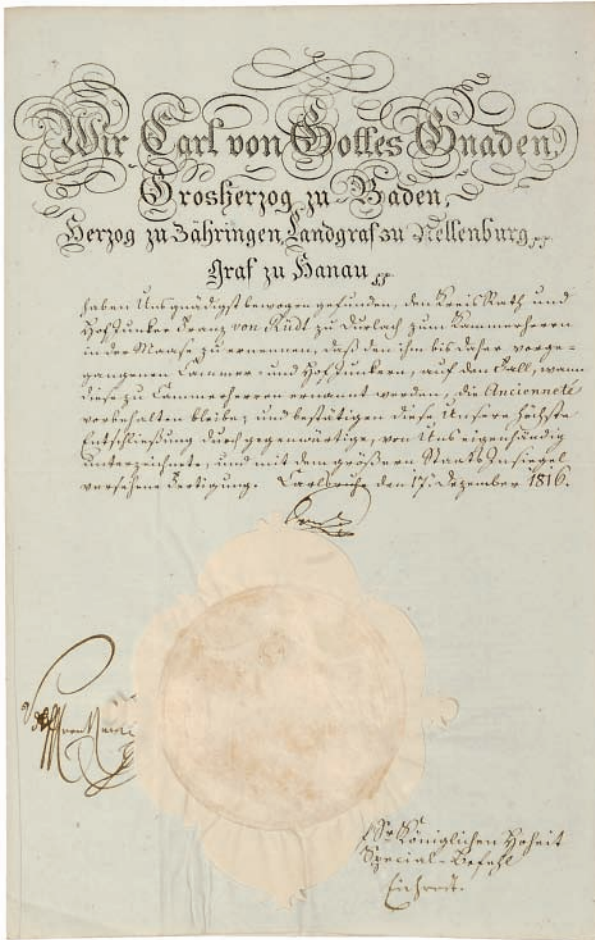 Wir Carl von Gottes Gnaden,
Grosherzog zu Baden,
Herzog zu Zähringen, Landgraf zu Nellenburg
Graf zu Hanau
haben Uns gnädigst bewogen gefunden, den Kreis Rath und
Hof Junker Franz von Rüdt zu Durlach zum Kammerherrn
in der Maase zu ernennen, daß den ihm bis daher vorge-
gangenen Cammer- und Hof Junkern, auf den Fall, wann
diese zu Cammerherren ernannt werden, die Ancienneté
vorbehalten bleibe; und bestätigen diese Unsere höchste
Entschließung durch gegenwärtige, von Uns eigenhändig
unterzeichnete, und mit dem größern Staats Insiegel
versehene Fertigung. Carlsruhe den 17. Dezember 1816.
Carl
Sr. Königlichen Hoheit
Special-Befehl
Eichrodt.